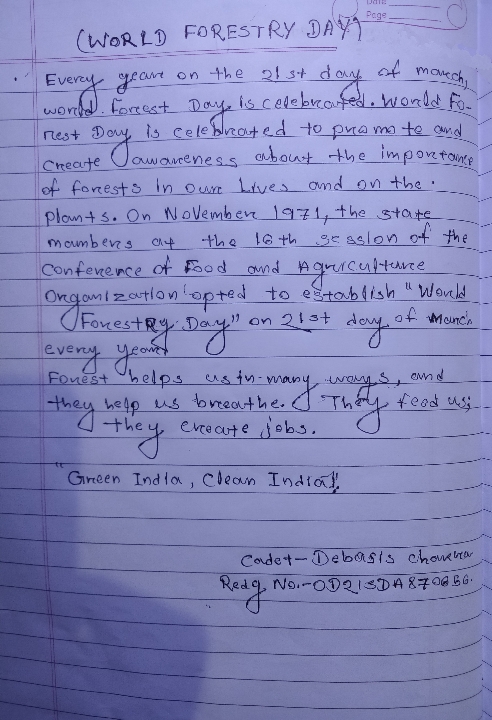 Date
Page
(WORLD FORESTRY DAY)
Every year on the 21st day of march,
world forest Day is celebrated. World Fo-
rest Day is celebrated to promote and
create awareness about the importance
of forests in our Lives and on the
plants. On November 1971, the state
mambers at the 16th session of the
Conference of Food and Agriculture
Organization opted to establish "World
Forestry Day" on 21st day of March
every year.
Forest helps us in many ways, and
they help us breathe. They feed us;
they create jobs.
"Green India, Clean India!"
Cadet - Debasis
Redg No.- OD21SDA870